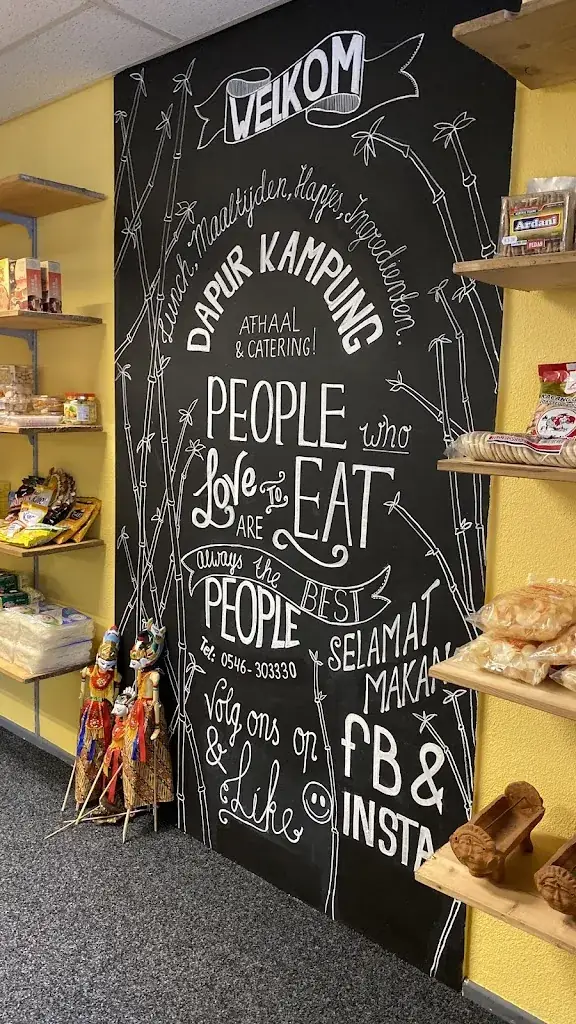 WELKOM
Lunch, Maaltijden, Hapjes, Ingredienten.
DAPUR KAMPUNG
AFHAAL
& CATERING!
PEOPLE who
Love to EAT
ARE
always the BEST
PEOPLE
Tel: 0546-303330
SELAMAT
MAKAN
Volg ons op
& Like
FB &
INSTA
Ardani
PEDAS